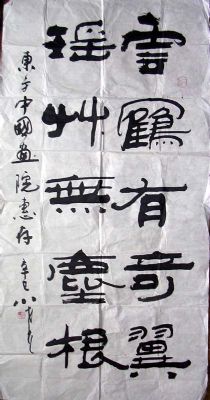 雲鶴有奇翼
瑶艸無塵根
東方中國畫院惠存
辛巳